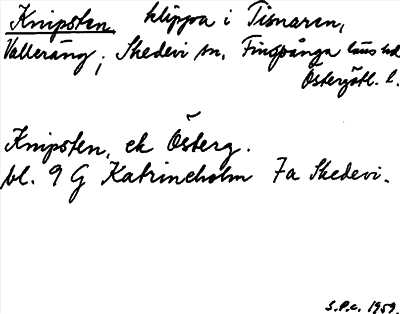 Knipsten, klippa i Tisnaren,
Valleräng, Skedevi sn, Finspånga läns hd
Östergötl. l.
Knipsten, ek Österg.
bl. 9 G Katrineholm 7a Skedevi.
S.P.c. 1959.